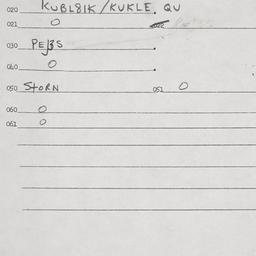 020 KUBL8IK/KUKLE. QU
021 0
030 PEJ3S
040 0
050 STORN 051 0
060 0
061 0